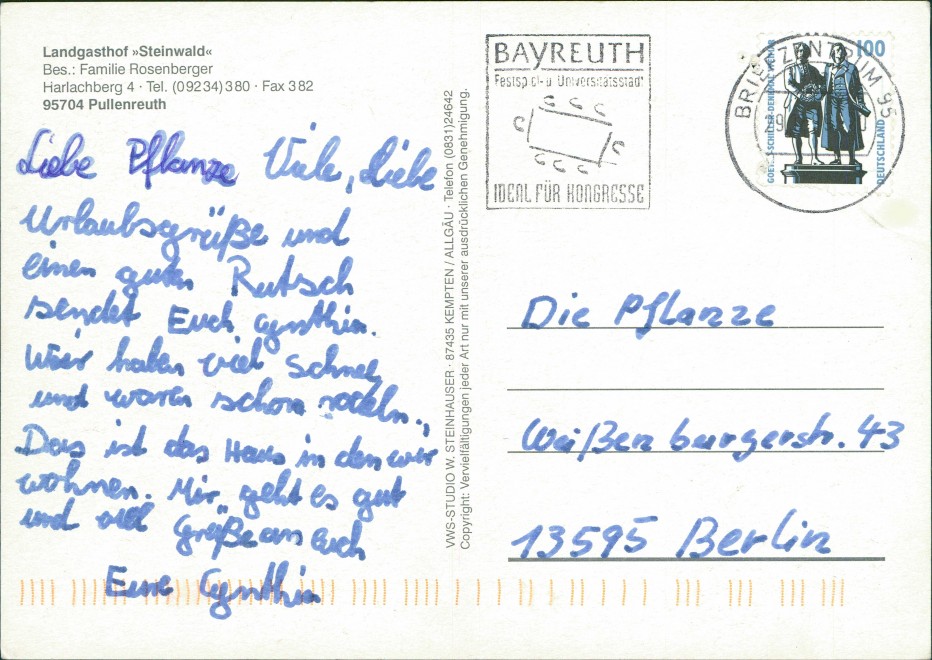 Landgasthof »Steinwald«
Bes.: Familie Rosenberger
Harlachberg 4 · Tel. (09234) 380 · Fax 3 82
95704 Pullenreuth
Liebe Pflanze Viele, liebe
Urlaubsgrüße und
einen guten Rutsch
sendet Euch Cynthia.
Wir haben viel Schnee
und waren schon rodeln.,
Das ist das Haus in den wir
wohnen. Mir geht es gut
und viel Grüße an Euch
Eure Cynthia
VWS-STUDIO W. STEINHAUSER · 87435 KEMPTEN / ALLGÄU · Telefon (0831) 24642
Copyright: Vervielfältigungen jeder Art nur mit unserer ausdrücklichen Genehmigung.
BAYREUTH
Festspiel- u. Universitätsstadt
IDEAL FÜR KONGRESSE
BRIEFZENTRUM 95
100
GOETHE-SCHILLER-DENKMAL WEIMAR
DEUTSCHLAND
Die Pflanze
Weißenburgerstr. 43
13595 Berlin